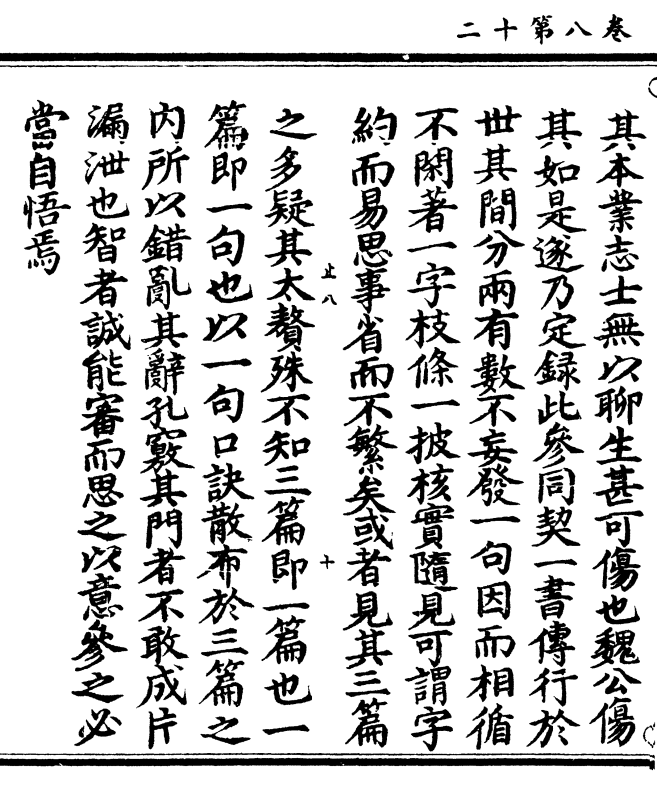 卷八第十二
其本業志士無以聊生甚可傷也魏公傷
其如是遂乃定録此參同契一書傳行於
世其間分兩有數不妄發一句因而相循
不閑著一字枝條一披核實隨見可謂字
約而易思事省而不繁矣或者見其三篇
止八
十
之多疑其太贅殊不知三篇即一篇也一
篇即一句也以一句口訣散布於三篇之
内所以錯亂其辭孔竅其門者不敢成片
漏泄也智者誠能審而思之以意參之必
當自悟焉